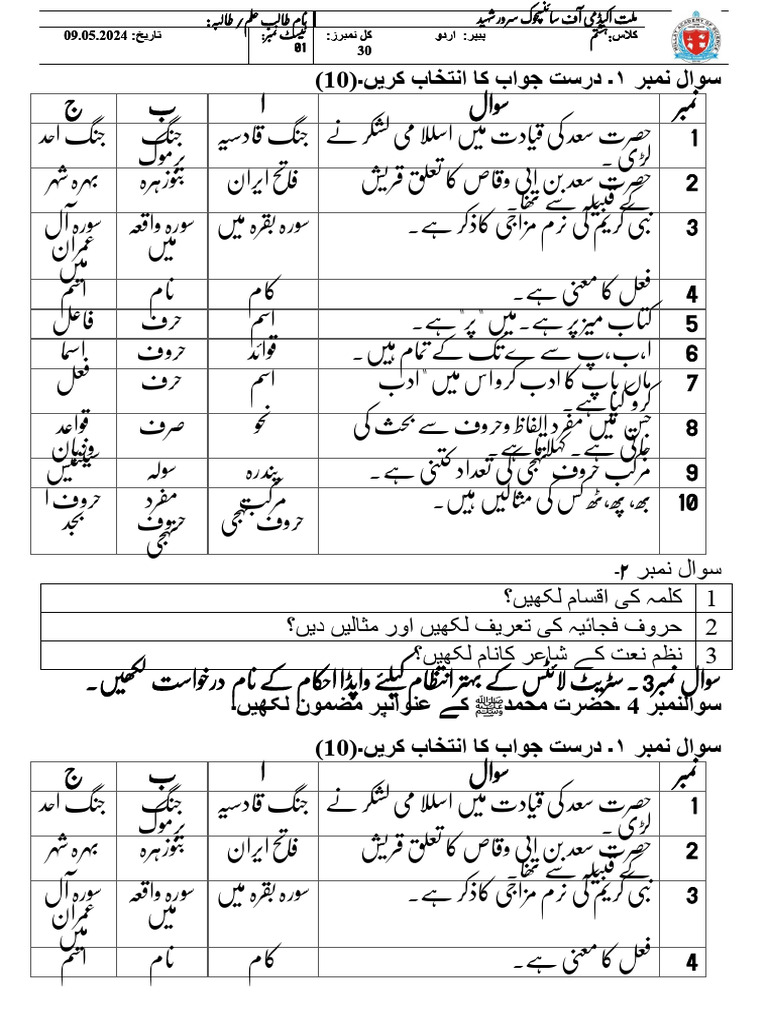 ملت اکیڈمی آف سائنس چوک سرور شہید نام طالب علم / طالبہ:
کلاس: ہشتم پیپر: اردو کل نمبرز: 30 ٹیسٹ نمبر: 01 تاریخ: 09.05.2024
سوال نمبر ۱۔ درست جواب کا انتخاب کریں۔(10)
نمبر سوال ا ب ج
1 حضرت سعد کی قیادت میں اسلامی لشکر نے لڑی۔ جنگ قادسیہ جنگ یرموک جنگ احد
2 حضرت سعد بن ابی وقاص کا تعلق قریش کے قبیلہ سے تھا۔ فاتح ایران بنوزہرہ بہرہ شہر
3 نبی کریم کی نرم مزاجی کا ذکر ہے۔ سورہ بقرہ میں سورہ واقعہ میں سورہ آل عمران میں
4 فعل کا معنی ہے۔ کام نام اسم
5 کتاب میز پر ہے۔ میں "پر" ہے۔ اسم حرف فاعل
6 ا،ب،پ سے ے تک کے تمام ہیں۔ قوائد حروف اسما
7 ماں باپ کا ادب کرو اس میں "ادب کرو کیا ہے۔ اسم حرف فعل
8 جس میں مفرد الفاظ وحروف سے بحث کی جاتی ہے۔ کہلاتا ہے۔ نحو صرف قواعد وزبان
9 مرکب حروف تہجی کی تعداد کتنی ہے۔ پندرہ سولہ
10 بھ، پھ، تھ کس کی مثالیں ہیں۔ مرکب حروف تہجی مفرد حروف تہجی حروف ابجد
سوال نمبر ۲۔
1 کلمہ کی اقسام لکھیں؟
2 حروف فجائیہ کی تعریف لکھیں اور مثالیں دیں؟
3 نظم نعت کے شاعر کانام لکھیں؟
سوال نمبر3 ۔ سٹریٹ لائٹس کے بہتر انتظام کیلئے واپڈا احکام کے نام درخواست لکھیں۔
سوالنمبر 4 ۔حضرت محمدﷺ کے عنوانپر مضمون لکھیں۔
سوال نمبر ۱۔ درست جواب کا انتخاب کریں۔(10)
نمبر سوال ا ب ج
1 حضرت سعد کی قیادت میں اسلامی لشکر نے لڑی۔ جنگ قادسیہ جنگ یرموک جنگ احد
2 حضرت سعد بن ابی وقاص کا تعلق قریش کے قبیلہ سے تھا۔ فاتح ایران بنوزہرہ بہرہ شہر
3 نبی کریم کی نرم مزاجی کا ذکر ہے۔ سورہ بقرہ میں سورہ واقعہ میں سورہ آل عمران میں
4 فعل کا معنی ہے۔ کام نام اسم